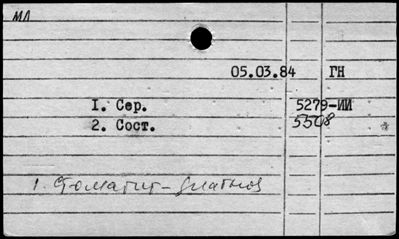 МЛ
05.03.84 ГН
1. Сер. 5279-ИИ
2. Сост. 5508 *
1. Стоматит - диагноз